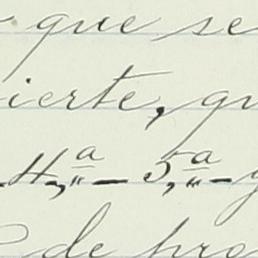 que se
ierte, qu
4,ª – 5,ª – y
de pro